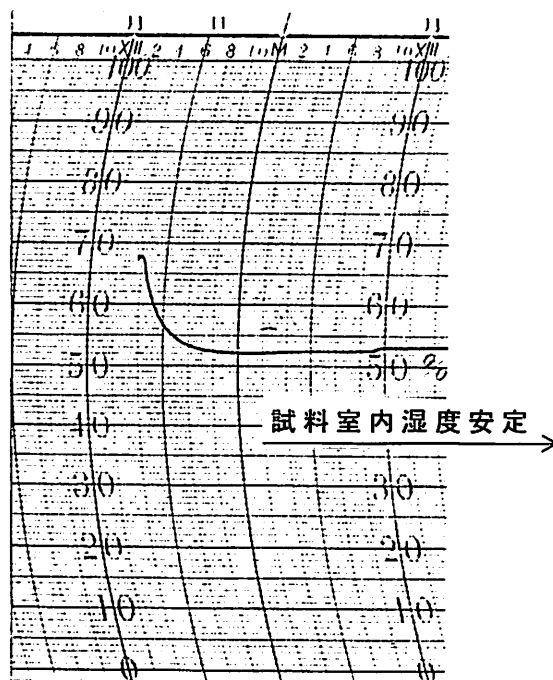 4 6 8 10 XII 2 4 6 8 10 M 2 4 6 8 10 XII
100 100
90 90
80 80
70 70
60 60
50 50 %
40
試料室内湿度安定
30 30
20 20
10 10
0 0